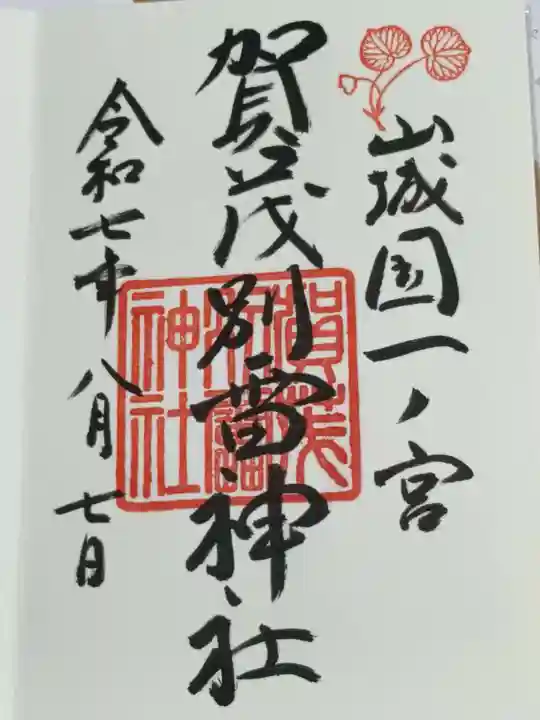 山城国一ノ宮
賀茂別雷神社
賀茂
別雷
神社
令和七年八月七日